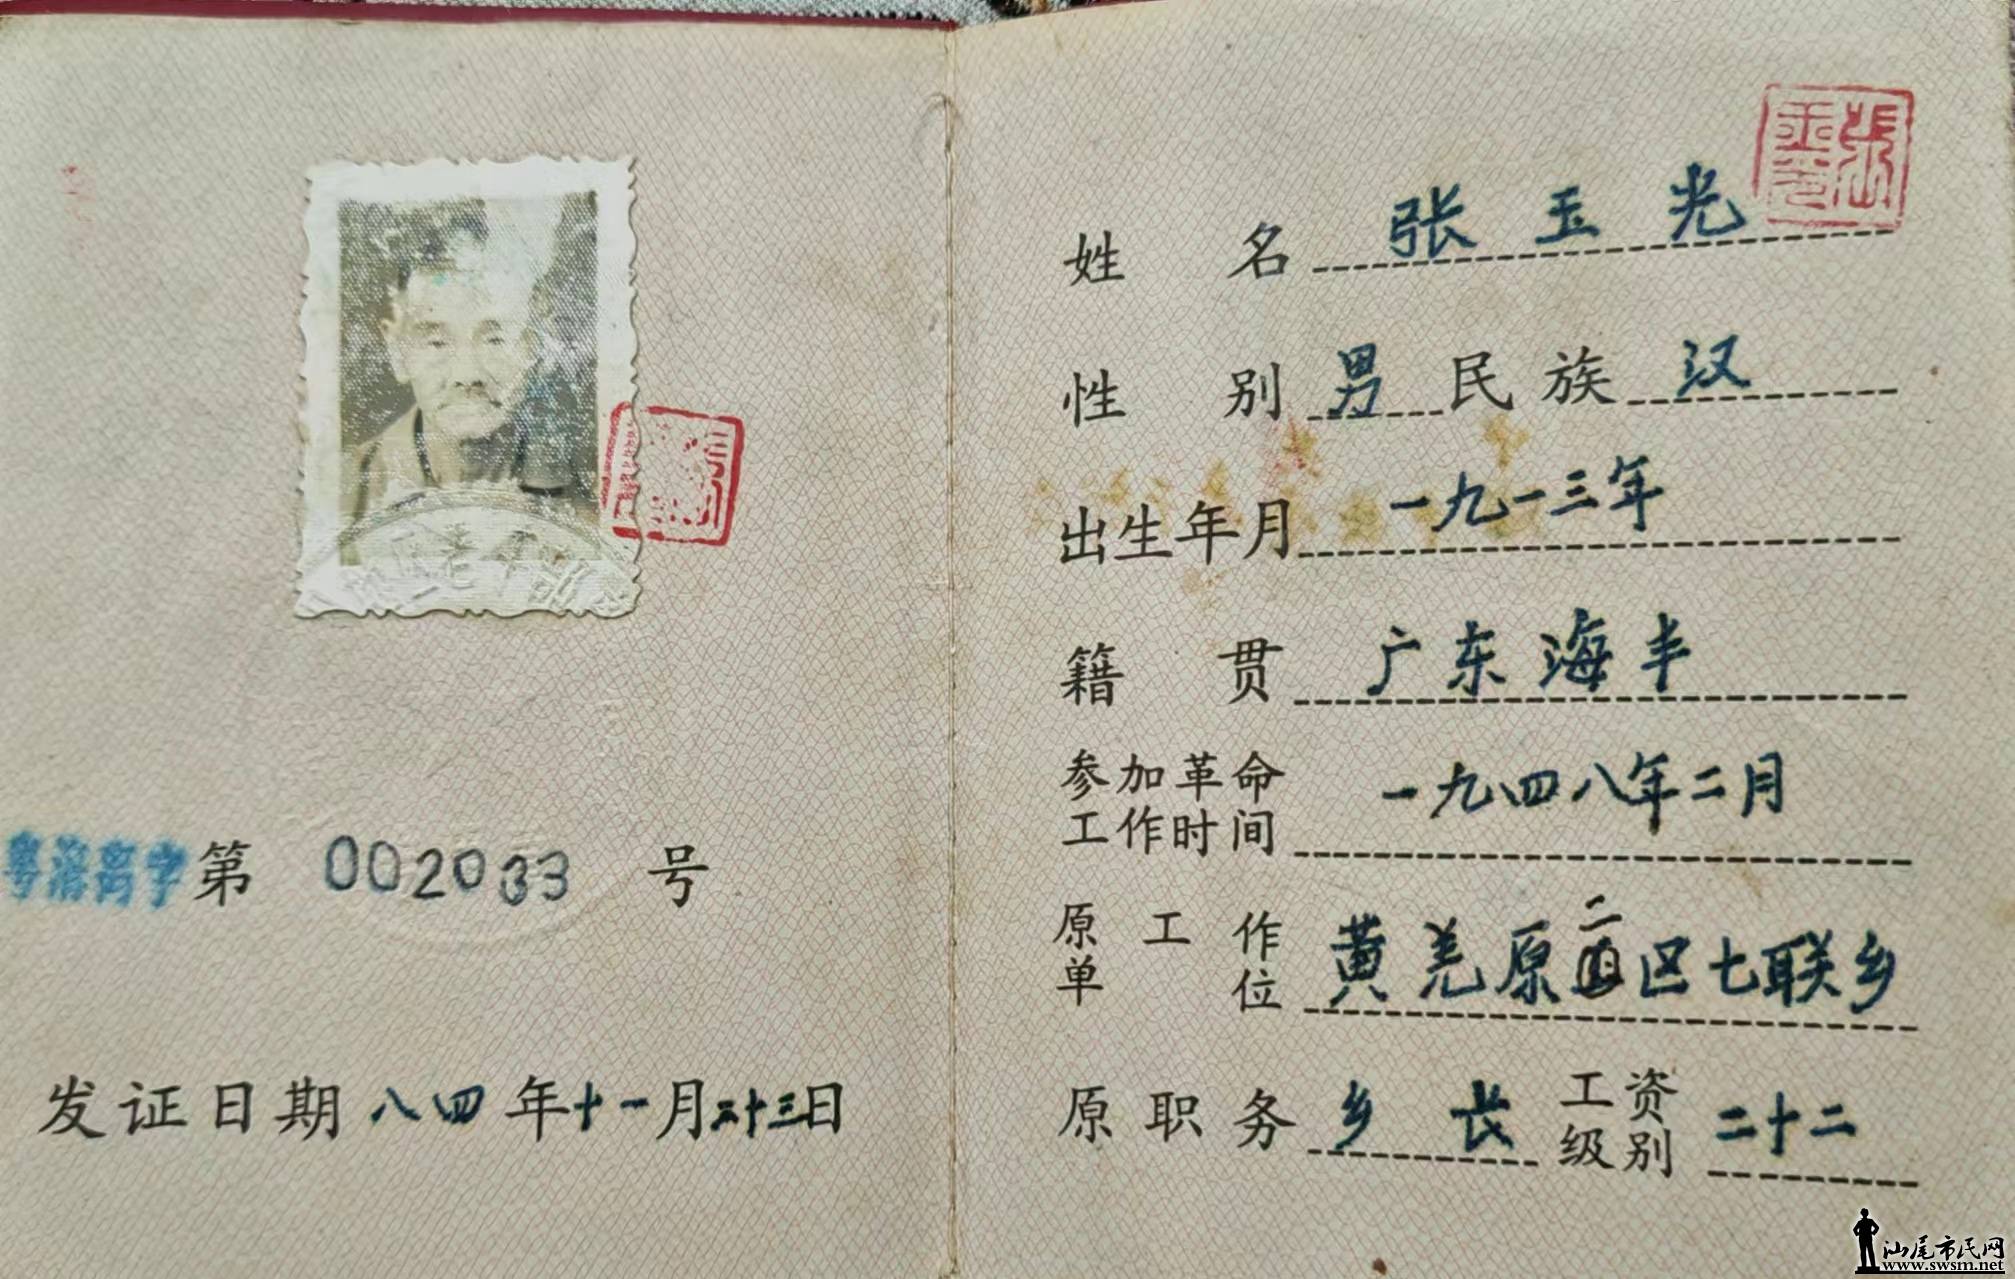 粤海离字第 002033 号
发证日期 八四 年 十一 月 二十三 日
姓名 张玉光
性别 男 民族 汉
出生年月 一九一三年
籍贯 广东海丰
参加革命
工作时间 一九四八年二月
原工作
单位 黄羌原二区七联乡
原职务 乡长 工资
级别 二十二
汕尾市民网
www.swsm.net